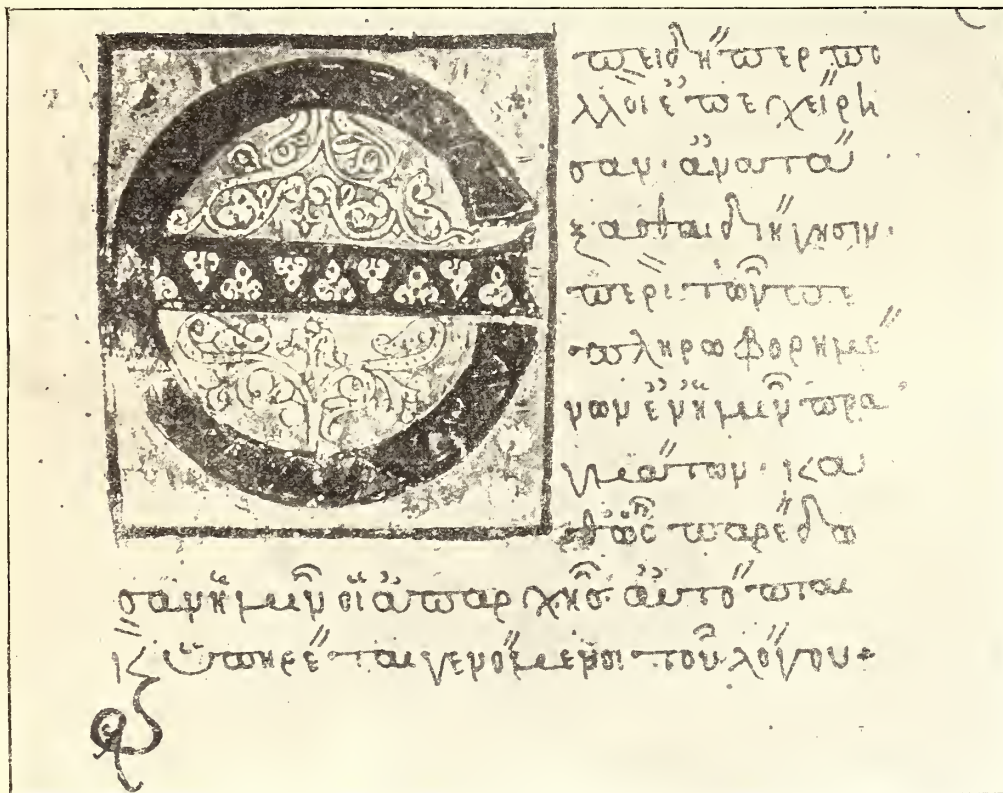 Ἐπειδήπερ πο
λλοὶ ἐπεχείρη
σαν· ἀνατά
ξασθαι διήγησιν·
περὶ τῶν πε
πληροφορημέ
νων ἐν ἡμῖν πρα
γμάτων· κα
θὼς παρέδω
σαν ἡμῖν οἱ ἀπαρχῆσ· αὐτόπται
ϗ ὑπηρέται γενόμενοι τοῦ λόγου·